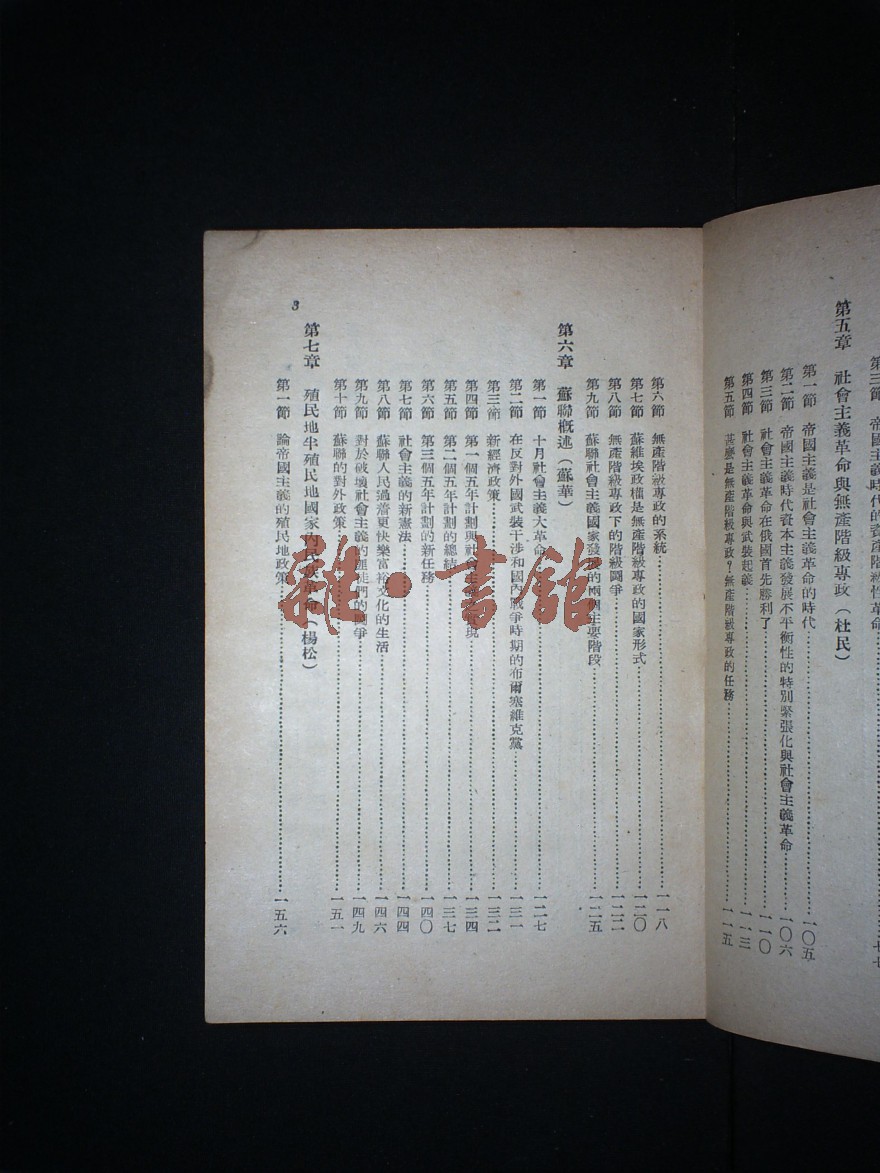 第三節 帝國主義時代的資產階級性革命……七七
第五章 社會主義革命與無產階級專政（杜民）
第一節 帝國主義是社會主義革命的時代……一〇五
第二節 帝國主義時代資本主義發展不平衡性的特別緊張化與社會主義革命……一〇六
第三節 社會主義革命在俄國首先勝利了……一一〇
第四節 社會主義革命與武裝起義……一一三
第五節 甚麼是無產階級專政？無產階級專政的任務……一一五
第六節 無產階級專政的系統……一一八
第七節 蘇維埃政權是無產階級專政的國家形式……一二〇
第八節 無產階級專政下的階級鬭爭……一二二
第九節 蘇聯社會主義國家發展的兩個主要階段……一二五
第六章 蘇聯概述（蘇華）
第一節 十月社會主義大革命……一二七
第二節 在反對外國武裝干涉和國內戰爭時期的布爾塞維克黨……一三一
第三節 新經濟政策……一三二
第四節 第一個五年計劃與社會主義實現……一三四
第五節 第二個五年計劃的總結……一三七
第六節 第三個五年計劃的新任務……一四〇
第七節 社會主義的新憲法……一四四
第八節 蘇聯人民過着更快樂富裕文化的生活……一四六
第九節 對於破壞社會主義的匪徒們的鬭爭……一四九
第十節 蘇聯的對外政策……一五一
第七章 殖民地半殖民地國家內民族革命（楊松）
第一節 論帝國主義的殖民地政策……一五六
3
雜·書館